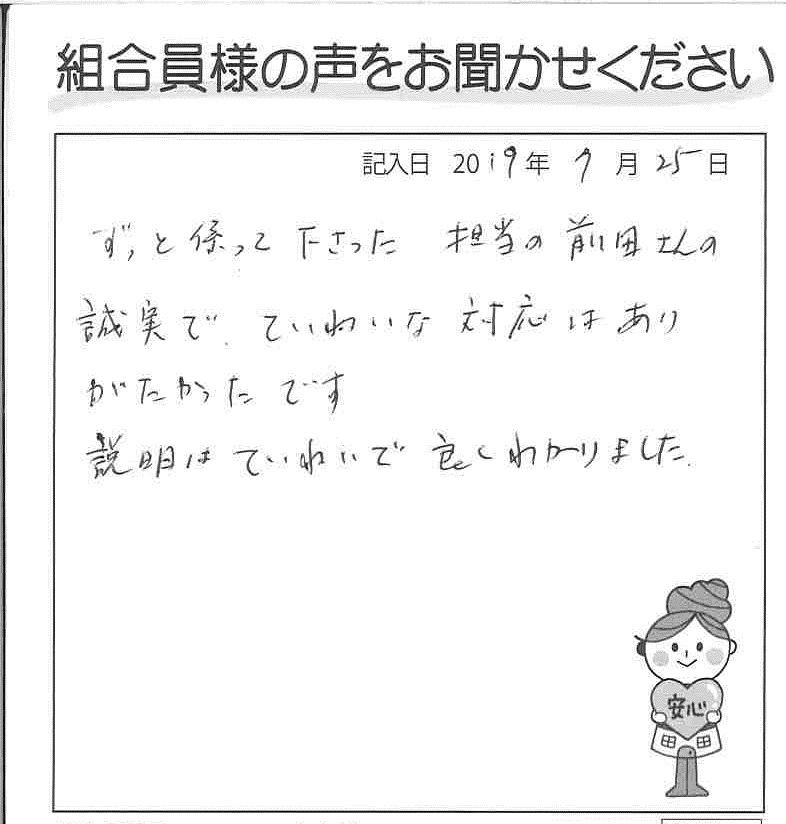 組合員様の声をお聞かせください
記入日 2019年 7月 25日
ずっと係って下さった 担当の前田さんの
誠実で、ていねいな対応はあり
がたかったです
説明はていねいで良くわかりました。
安心